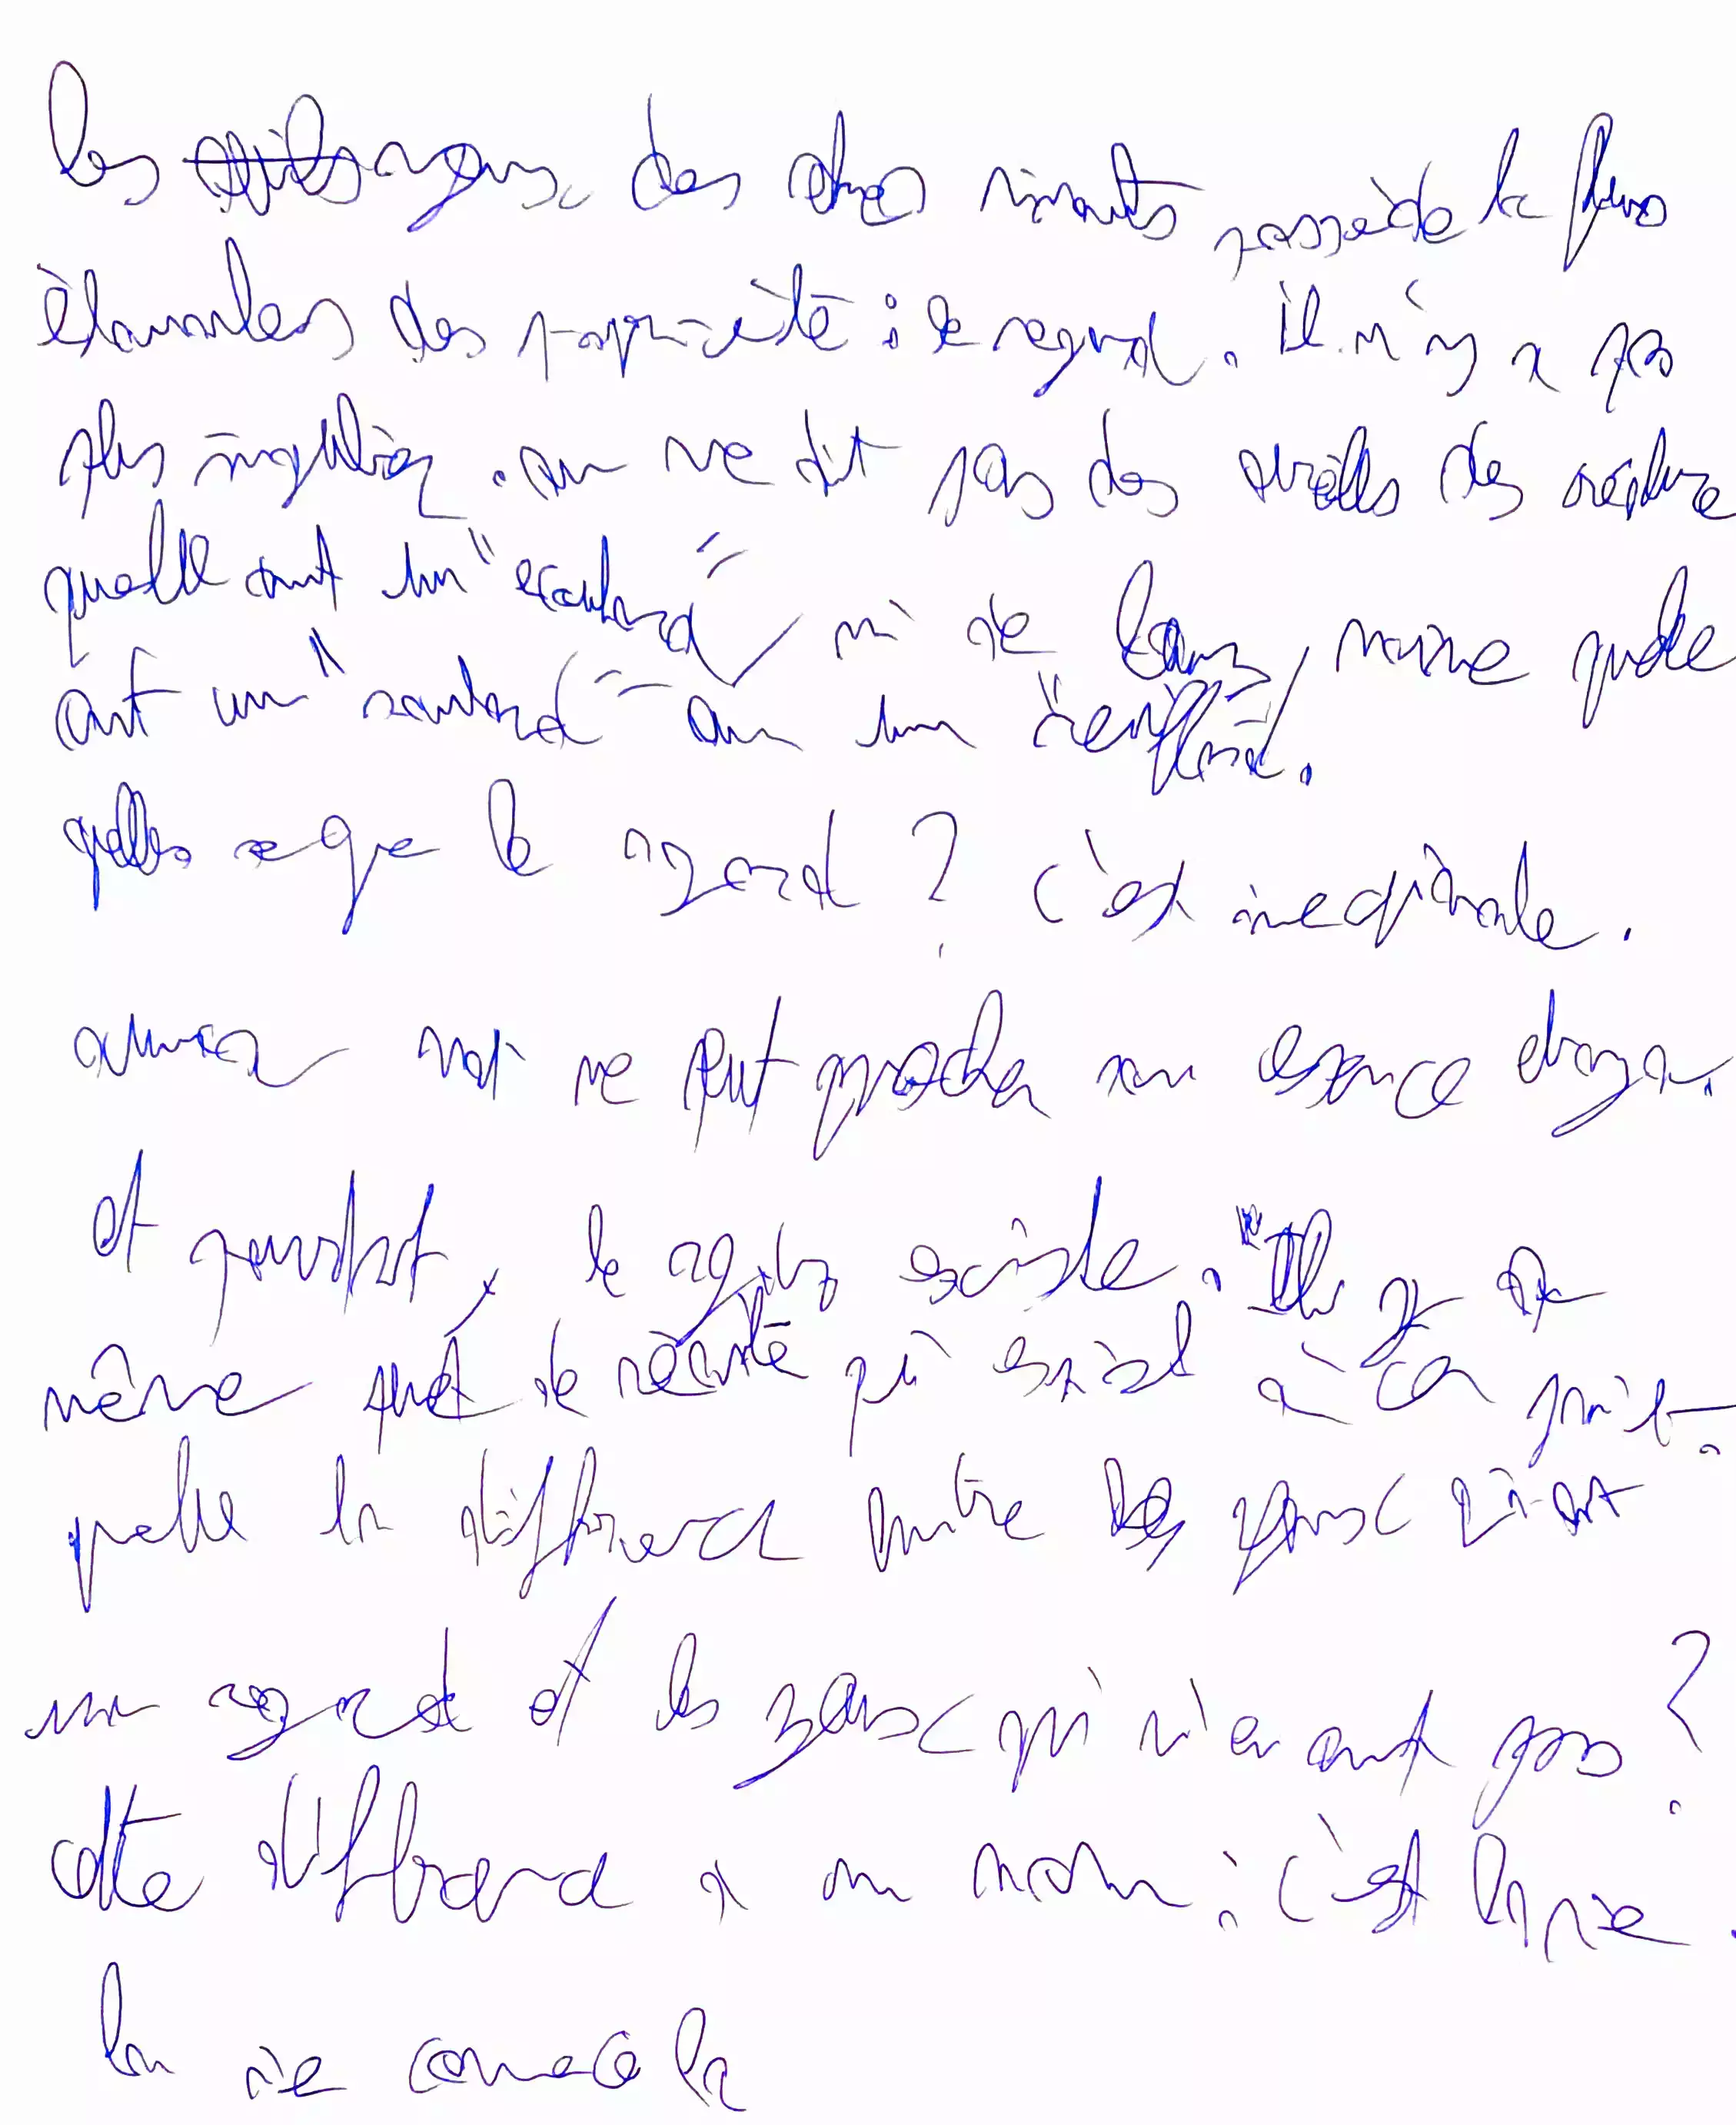 les yeux des êtres vivants possède la plus
étonnantes des propriété : le regard. il n'y a pas
plus singulier. on ne dit pas des oreilles des créature
quelle ont un "écoutard", ni de leurs narine quelle
ont un "sentard" ou un "reniflard".
qu'est ce que le regard ? c'est inexprimable.
aucun mot ne peut approcher son essence étrange.
et pourtant, le regard existe. Il y a
même peu de réalité qui existe à ce point.
quelle la différence entre les yeux qui ont
un regard et les yeux qui n'en ont pas ?
cette différence a un nom : c'est la vie.
la vie commence là